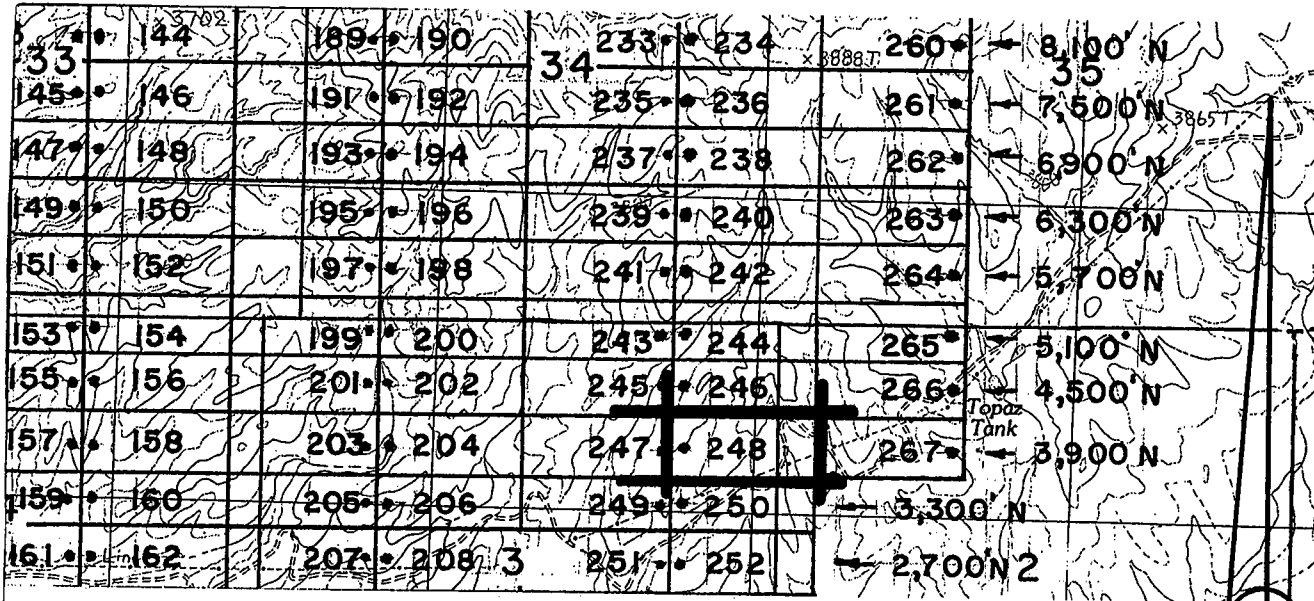 × 3702
144 189 190 233 234 260 8,100' N
33 34 × 3888T 35
145 146 191 192 235 236 261 7,500'N
× 3865T
147 148 193 194 237 238 262 6,900'N
149 150 195 196 239 240 263 6,300'N
151 152 197 198 241 242 264 5,700'N
153 154 199 200 243 244 265 5,100'N
155 156 201 202 245 246 266 4,500'N
Topaz
Tank
157 158 203 204 247 248 267 3,900'N
159 160 205 206 249 250 3,300'N
161 162 207 208 3 251 252 2,700'N 2